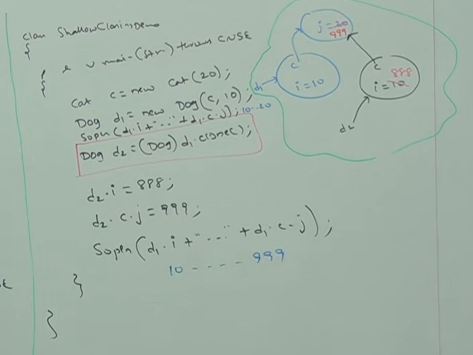 class ShallowCloningDemo
{
p s v main(String[]) throws CNSE
{
Cat c = new Cat(20);
Dog d1 = new Dog(c, 10);
Sopln(d1.i + "...." + d1.c.j); 10...20
Dog d2 = (Dog) d1.clone();
d2.i = 888;
d2.c.j = 999;
Sopln(d1.i + "...." + d1.c.j);
10 - - - - 999
}
}
j = 20
999
c
d1
i = 10
c
888
i = 10
d2